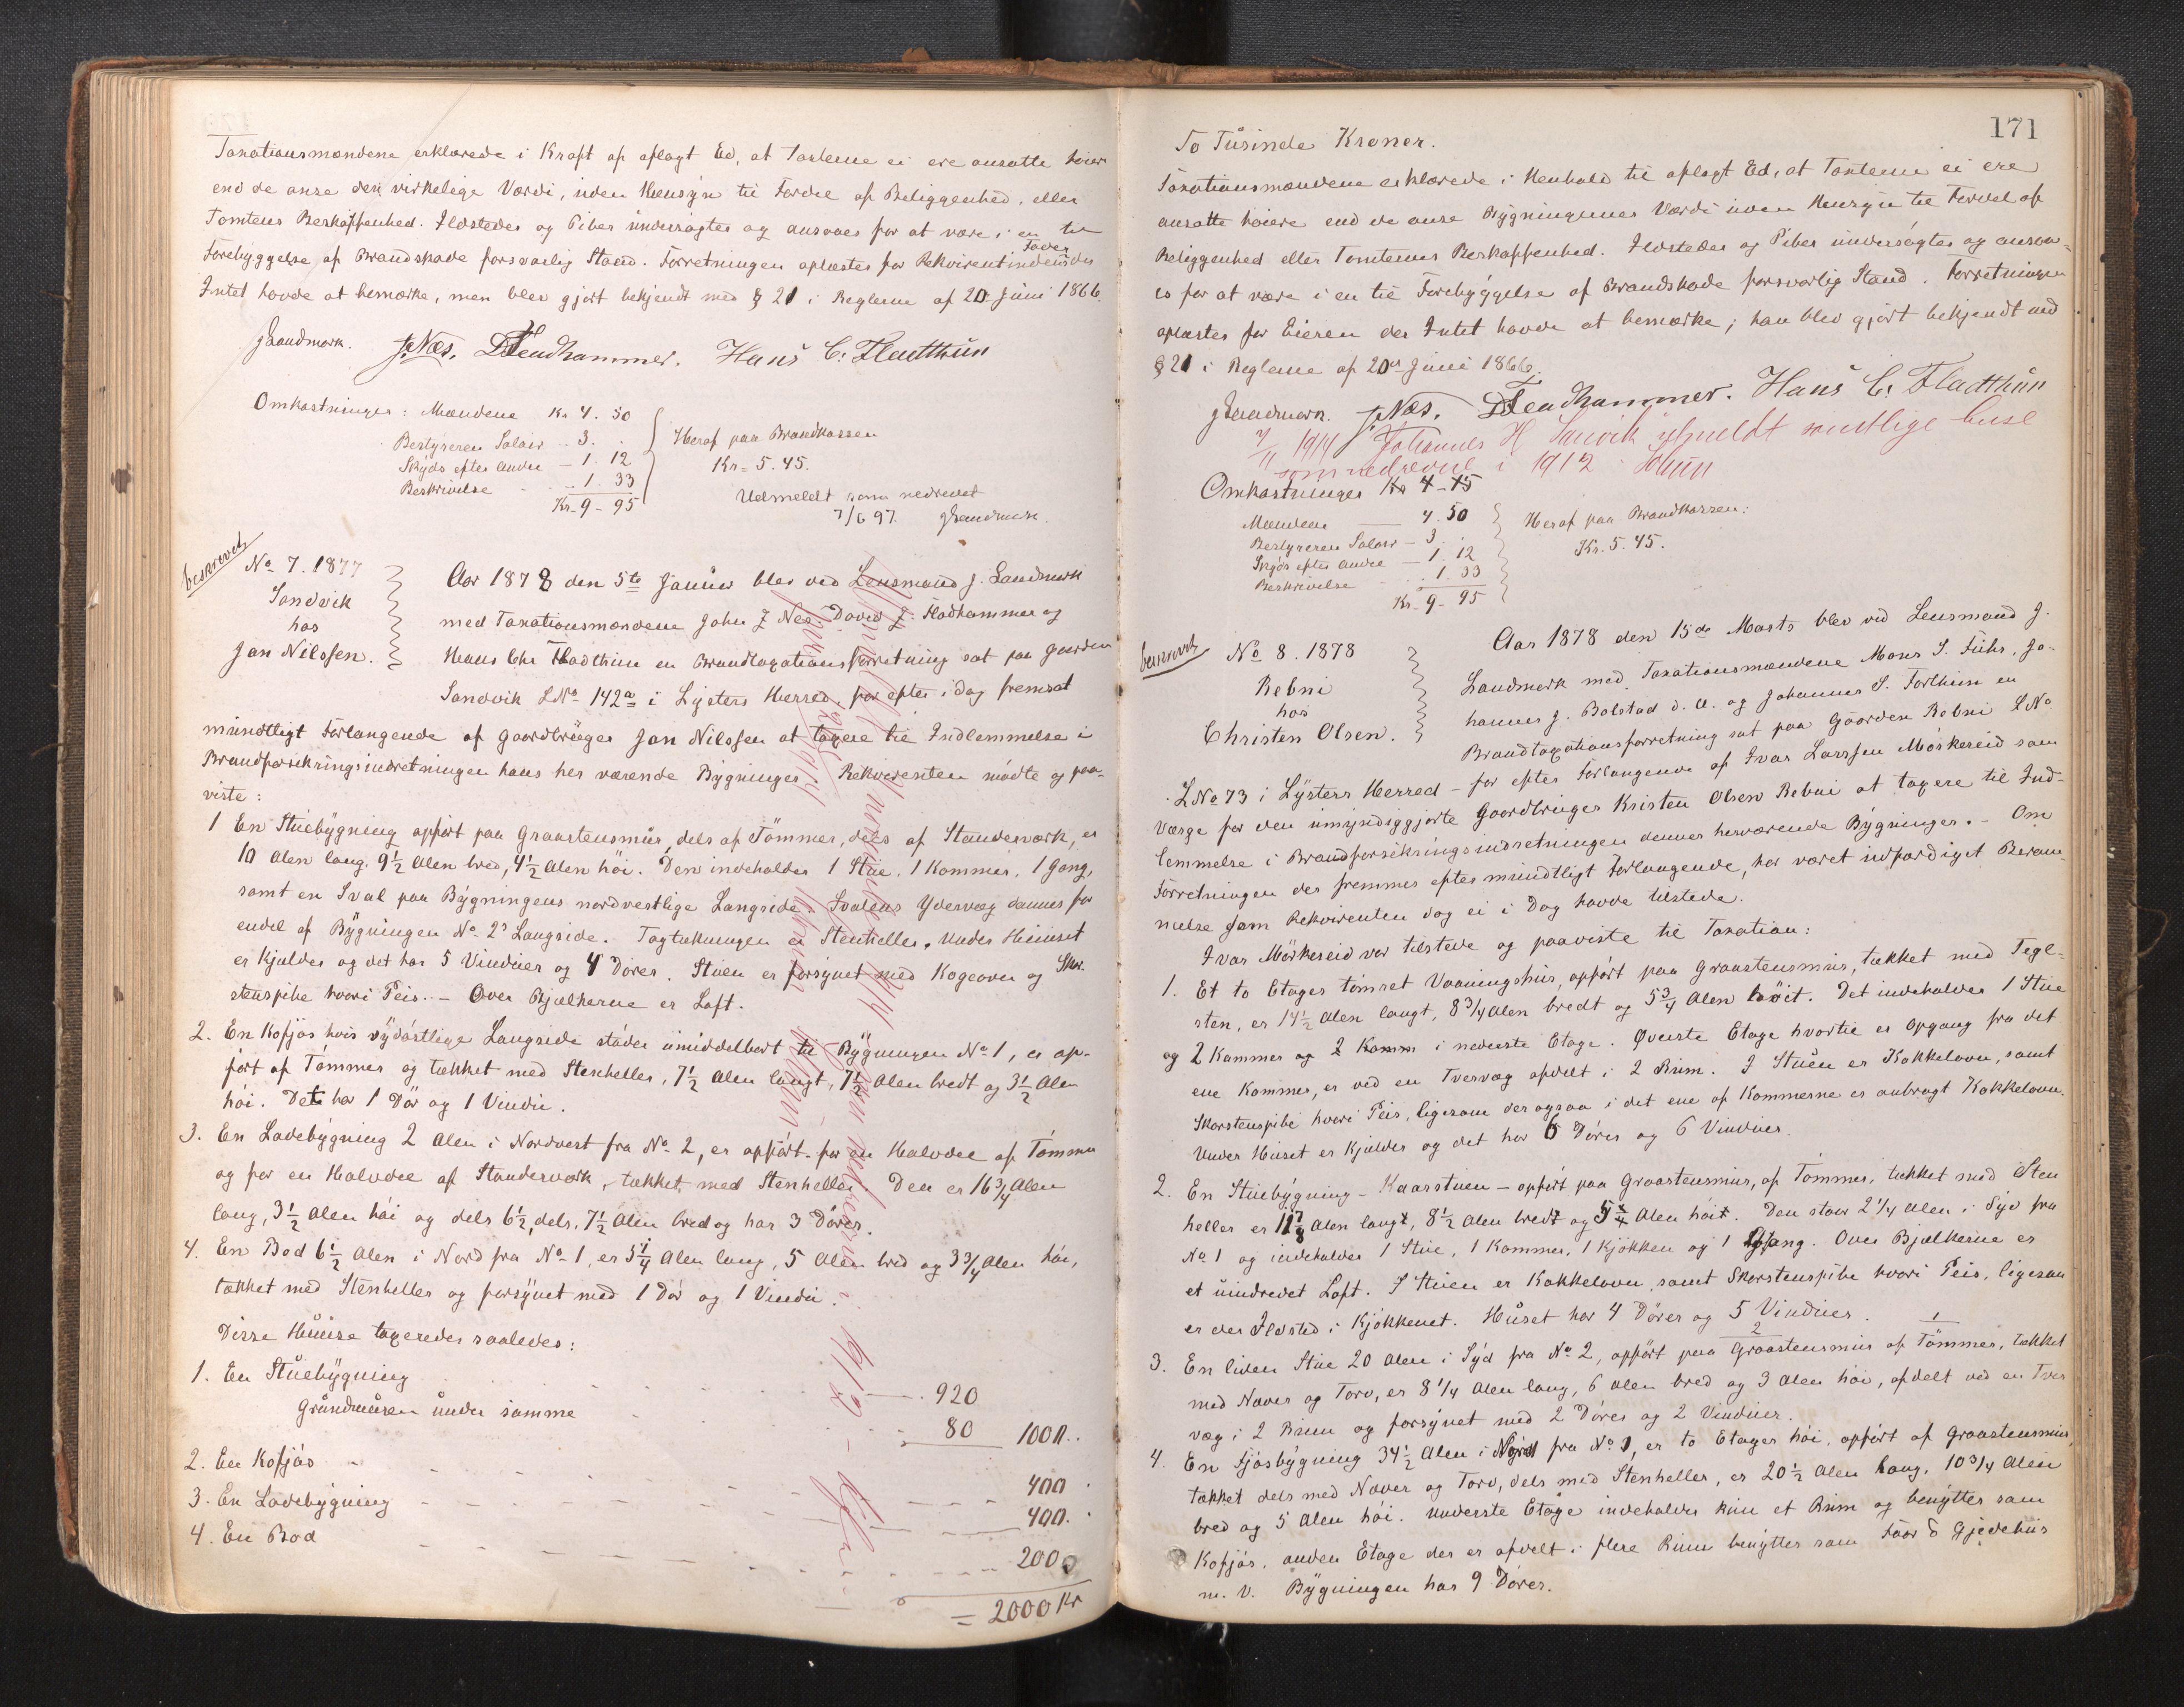 Taxationsmændene erklærede i Kraft af aflagt Ed, at Taxterne ei ere ansatte høiere
end de anse den virkelige Værdi, uden Hensyn til Fordel af Beliggenhed, eller
Tomtens Beskaffenhed. Ildsteder og Piber undersøgtes og ansaaes for at være i en til
Forebyggelse af Brandskade forsvarlig Stand. Forretningen oplæstes for Rekvirentindens Fader der
Intet havde at bemærke, men blev gjort bekjendt med § 21 i Reglerne af 20 Juni 1866.
J Landmark. J. Næs. D Fladhammer. Hans C. Fladthun
Omkostninger: Mændene Kr 4. 50
Bestyreren Salær .. 3. .
Skyds efter Andre — 1. 12
Beskrivelse .. 1. 33
Kr. 9 - 95
Heraf paa Brandkassen
Kr. 5. 45.
Udmeldt som nedrevet
7/6 97. J Landmark.
beskrevet
No 7. 1877
Sandvik
hos
Jan Nilssen.
Aar 1878 den 5te Januar blev ved Lensmand J. Landmark
med Taxationsmændene John J Næs David J. Fladhammer og
Hans Chr Fladthun en Brandtaxationsforretning sat paa Gaarden
Sandvik LNo 142a i Lysters Herred, for efter idag fremsat
mundtligt Forlangende af Gaardbruger Jan Nilssen at taxere til Indlemmelse i
Brandforsikringsindretningen hans her værende Bygninger. Rekvirenten mødte og paa-
viste:
1 En Stuebygning opført paa Graastensmur, dels af Tømmer, dels af Stenderværk, er
10 Alen lang, 9½ Alen bred, 4½ Alen høi. Den indeholder 1 Stue, 1 Kammer, 1 Gang,
samt en Sval paa Bygningens nordvestlige Langside. Svalens Ydervæg dannes for
endel af Bygningen No 2s Langside. Tagtækningen er Stenheller. Under Huset
er Kjelder og det har 5 Vinduer og 4 Døre. Stuen er forsynet med Kogeovn og Skor-
stenspibe hvori Peis. — Over Bjælkerne er Loft.
2. En Kofjøs hvis sydøstlige Langside støder umiddelbart til Bygningen No 1, er op-
ført af Tømmer og tækket med Stenheller, 7½ Alen langt, 7½ Alen bredt og 3½ Alen
høi. Det har 1 Dør og 1 Vindu.
3. En Ladebygning 2 Alen i Nordvest fra No 2, er opført for en Halvdel af Tømmer
og for en Halvdel af Stenderværk, tækket med Stenheller. Den er 16¾ Alen
lang, 3½ Alen høi og dels 6½, dels 7½ Alen bred og har 3 Døre.
4. En Bod 6½ Alen i Nord fra No 1, er 5¼ Alen lang, 5 Alen bred og 3¾ Alen høi,
tækket med Stenheller og forsynet med 1 Dør og 1 Vindu.
Disse Huse taxeredes saaledes:
1. En Stuebygning 920
Grundmuren under samme 80 1000.
2. En Kofjøs 400
3. En Ladebygning 400.
4. En Bod 200
= 2000 Kr
171
To Tusinde Kroner.
Taxationsmændene erklærede i Henhold til aflagt Ed, at Taxterne ei ere
ansatte høiere end de anse Bygningernes Værdi uden Hensyn til Fordel af
Beliggenhed eller Tomternes Beskaffenhed. Ildsteder og Piber undersøgtes og ansaa-
es for at være i en til Forebyggelse af Brandskade forsvarlig Stand. Forretningen
oplæstes for Eieren der Intet havde at bemærke; han blev gjort bekjendt med
§ 21 i Reglerne af 20de Juni 1866.
J Landmark. J. Næs. D Fladhammer. Hans C. Fladthun
7/11 1914 Johannes H Sanvik udmeldt samtlige huse
som nedrevne i 1912
Omkostninger Kr 4-45
Mændene — 4. 50
Bestyreren Salær — 3. .
Skyds efter Andre — 1. 12
Beskrivelse .. 1. 33
Kr. 9 - 95
Heraf paa Brandkassen:
Kr. 5. 45.
beskrevet
No 8. 1878
Rebni
hos
Christen Olsen.
Aar 1878 den 15de Marts blev ved Lensmand J.
Landmark med Taxationsmændene Mons S. Fuhr, Jo-
hannes J. Bolstad d. a. og Johannes S. Forthun en
Brandtaxationsforretning sat paa Gaarden Rebni LNo
LNo 73 i Lysters Herred — for efter Forlangende af Ivar Larssen Mørkereid som
Værge for den umyndiggjorte Gaardbruger Kristen Olsen Rebni at taxere til Ind-
lemmelse i Brandforsikringsindretningen dennes herværende Bygninger. — Om
Forretningen der fremmes efter mundtligt Forlangende, har været indfærdiget Beram-
melse som Rekvirenten dog ei i Dag havde tilstede.
Ivar Mørkereid var tilstede og paaviste til Taxation:
1. Et to Etages tømret Vaaningshus, opført paa Graastensmur, tækket med Tegl-
sten, er 14½ Alen langt, 8¾ Alen bredt og 5¾ Alen høit. Det indeholder 1 Stue
og 2 Kammer og 2 Kamm i nederste Etage. Øverste Etage hvortil er Opgang fra det
ene Kammer, er ved en Tvervæg afdelt i 2 Rum. I Stuen er Kakkelovn, samt
Skorstenspibe hvori Peis, ligesom der ogsaa i det ene af Kammerne er anbragt Kakkelovn.
Under Huset er Kjælder og det har 6 Døre og 6 Vinduer.
2. En Stuebygning — Kaarstuen — opført paa Graastensmur, af Tømmer, tækket med Sten
heller er 11⅞ Alen langt, 8½ Alen bredt og 5¾ Alen høit. Den staar 2¼ Alen i Syd fra
No 1 og indeholder 1 Stue, 1 Kammer, 1 Kjøkken og 1 Gang. Over Bjælkerne er
et uindredet Loft. I Stuen er Kakkelovn, samt Skorstenspibe hvori Peis, ligesaa
er der Ildsted i Kjøkkenet. Huset har 4 Døre og 5 Vinduer.
3. En liden Stue 20 Alen i Syd fra No 2, opført paa Graastensmur af Tømmer, tækket
med Næver og Torv, er 8¼ Alen lang, 6 Alen bred og 3 Alen høi, afdelt ved en Tver
væg i 2 Rum og forsynet med 2 Døre og 2 Vinduer.
4. En Fjøsbygning 34½ Alen i Nord fra No 1, er to Etager høi, opført af Graastensmur,
tækket dels med Næver og Torv, dels med Stenheller, er 20½ Alen lang, 10¾ Alen
bred og 5 Alen høi. Underste Etage indeholder kun et Rum og benyttes som
Kofjøs, anden Etage der er afdelt i flere Rum benyttes som Faar & Gjedehus
m. V. Bygningen har 9 Døre.